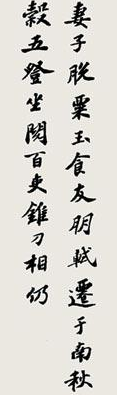 妻子脱粟玉食友朋轼遷于南秋
穀五登坐閲百吏錐刀相仍